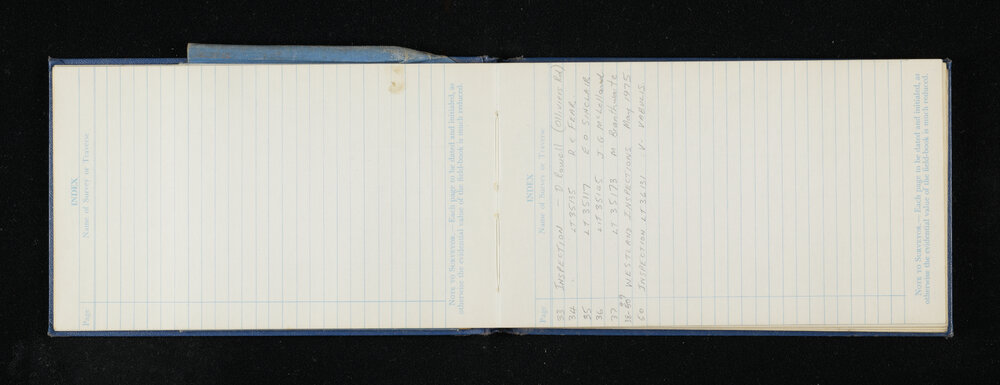 INDEX
Page Name of Survey or Traverse
NOTE TO SURVEYOR.—Each page to be dated and initialed, as
otherwise the evidential value of the field-book is much reduced.
INDEX
Page Name of Survey or Traverse
33 INSPECTION - D Powell
34 LT 35135 D C FEAR
35 LT 35117 E O SINCLAIR
36 LT 35105 J G McLelland
37 LT 35173 M Branthwaite
38-49 WESTLAND INSPECTIONS May 1975
50 INSPECTION LT 36131 V
NOTE TO SURVEYOR.—Each page to be dated and initialed, as
otherwise the evidential value of the field-book is much reduced.